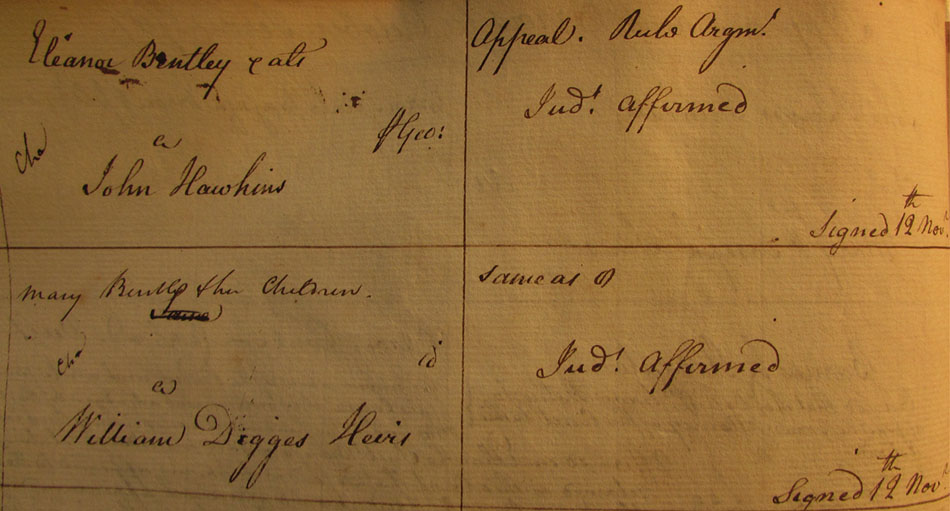 Eleanor Bentley & als
Cha
a
John Hawkins
PGeo:
Appeal. Rule Argmt.
Judt. Affirmed
Signed 12th Nov.
Mary Bently & her Children.
Cha
a
William Digges Heirs
id
Same as
Judt. Affirmed
Signed 12th Nov.